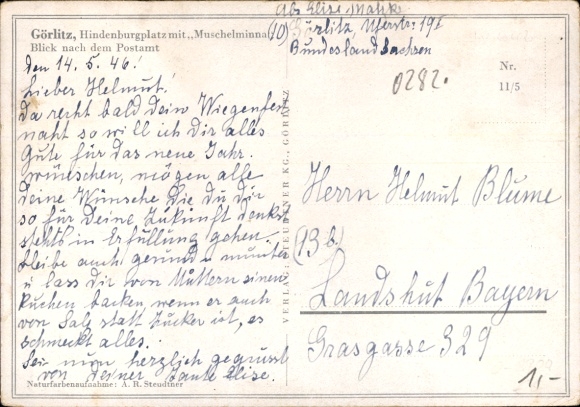 Abs Elise Malik
Görlitz, Hindenburgplatz mit „Muschelminna"
(10) Görlitz, Uferstr 19 I
Blick nach dem Postamt
Bundesland Sachsen
0282.
Nr.
11/5
den 14. 5. 46!
Lieber Helmut!
Da recht bald dein Wiegenfest
naht so will ich dir alles
Gute für das neue Jahr.
wünschen, mögen alle
deine Wünsche die du dir
so für Deine Zukunft denkst
stehts in Erfüllung gehen.
bleibe auch gesund u munter
u lass dir von Muttern einen
Kuchen backen wenn er auch
von Salz statt Zucker ist, es
schmeckt alles.
Sei nun herzlich gegrüsst
von deiner Tante Elise.
Naturfarbenaufnahme: A. R. Steudtner
VERLAG: STEUDTNER KG., GÖRLITZ
Herrn Helmut Blume
(13 b)
Landshut Bayern
Grasgasse 329
1,-